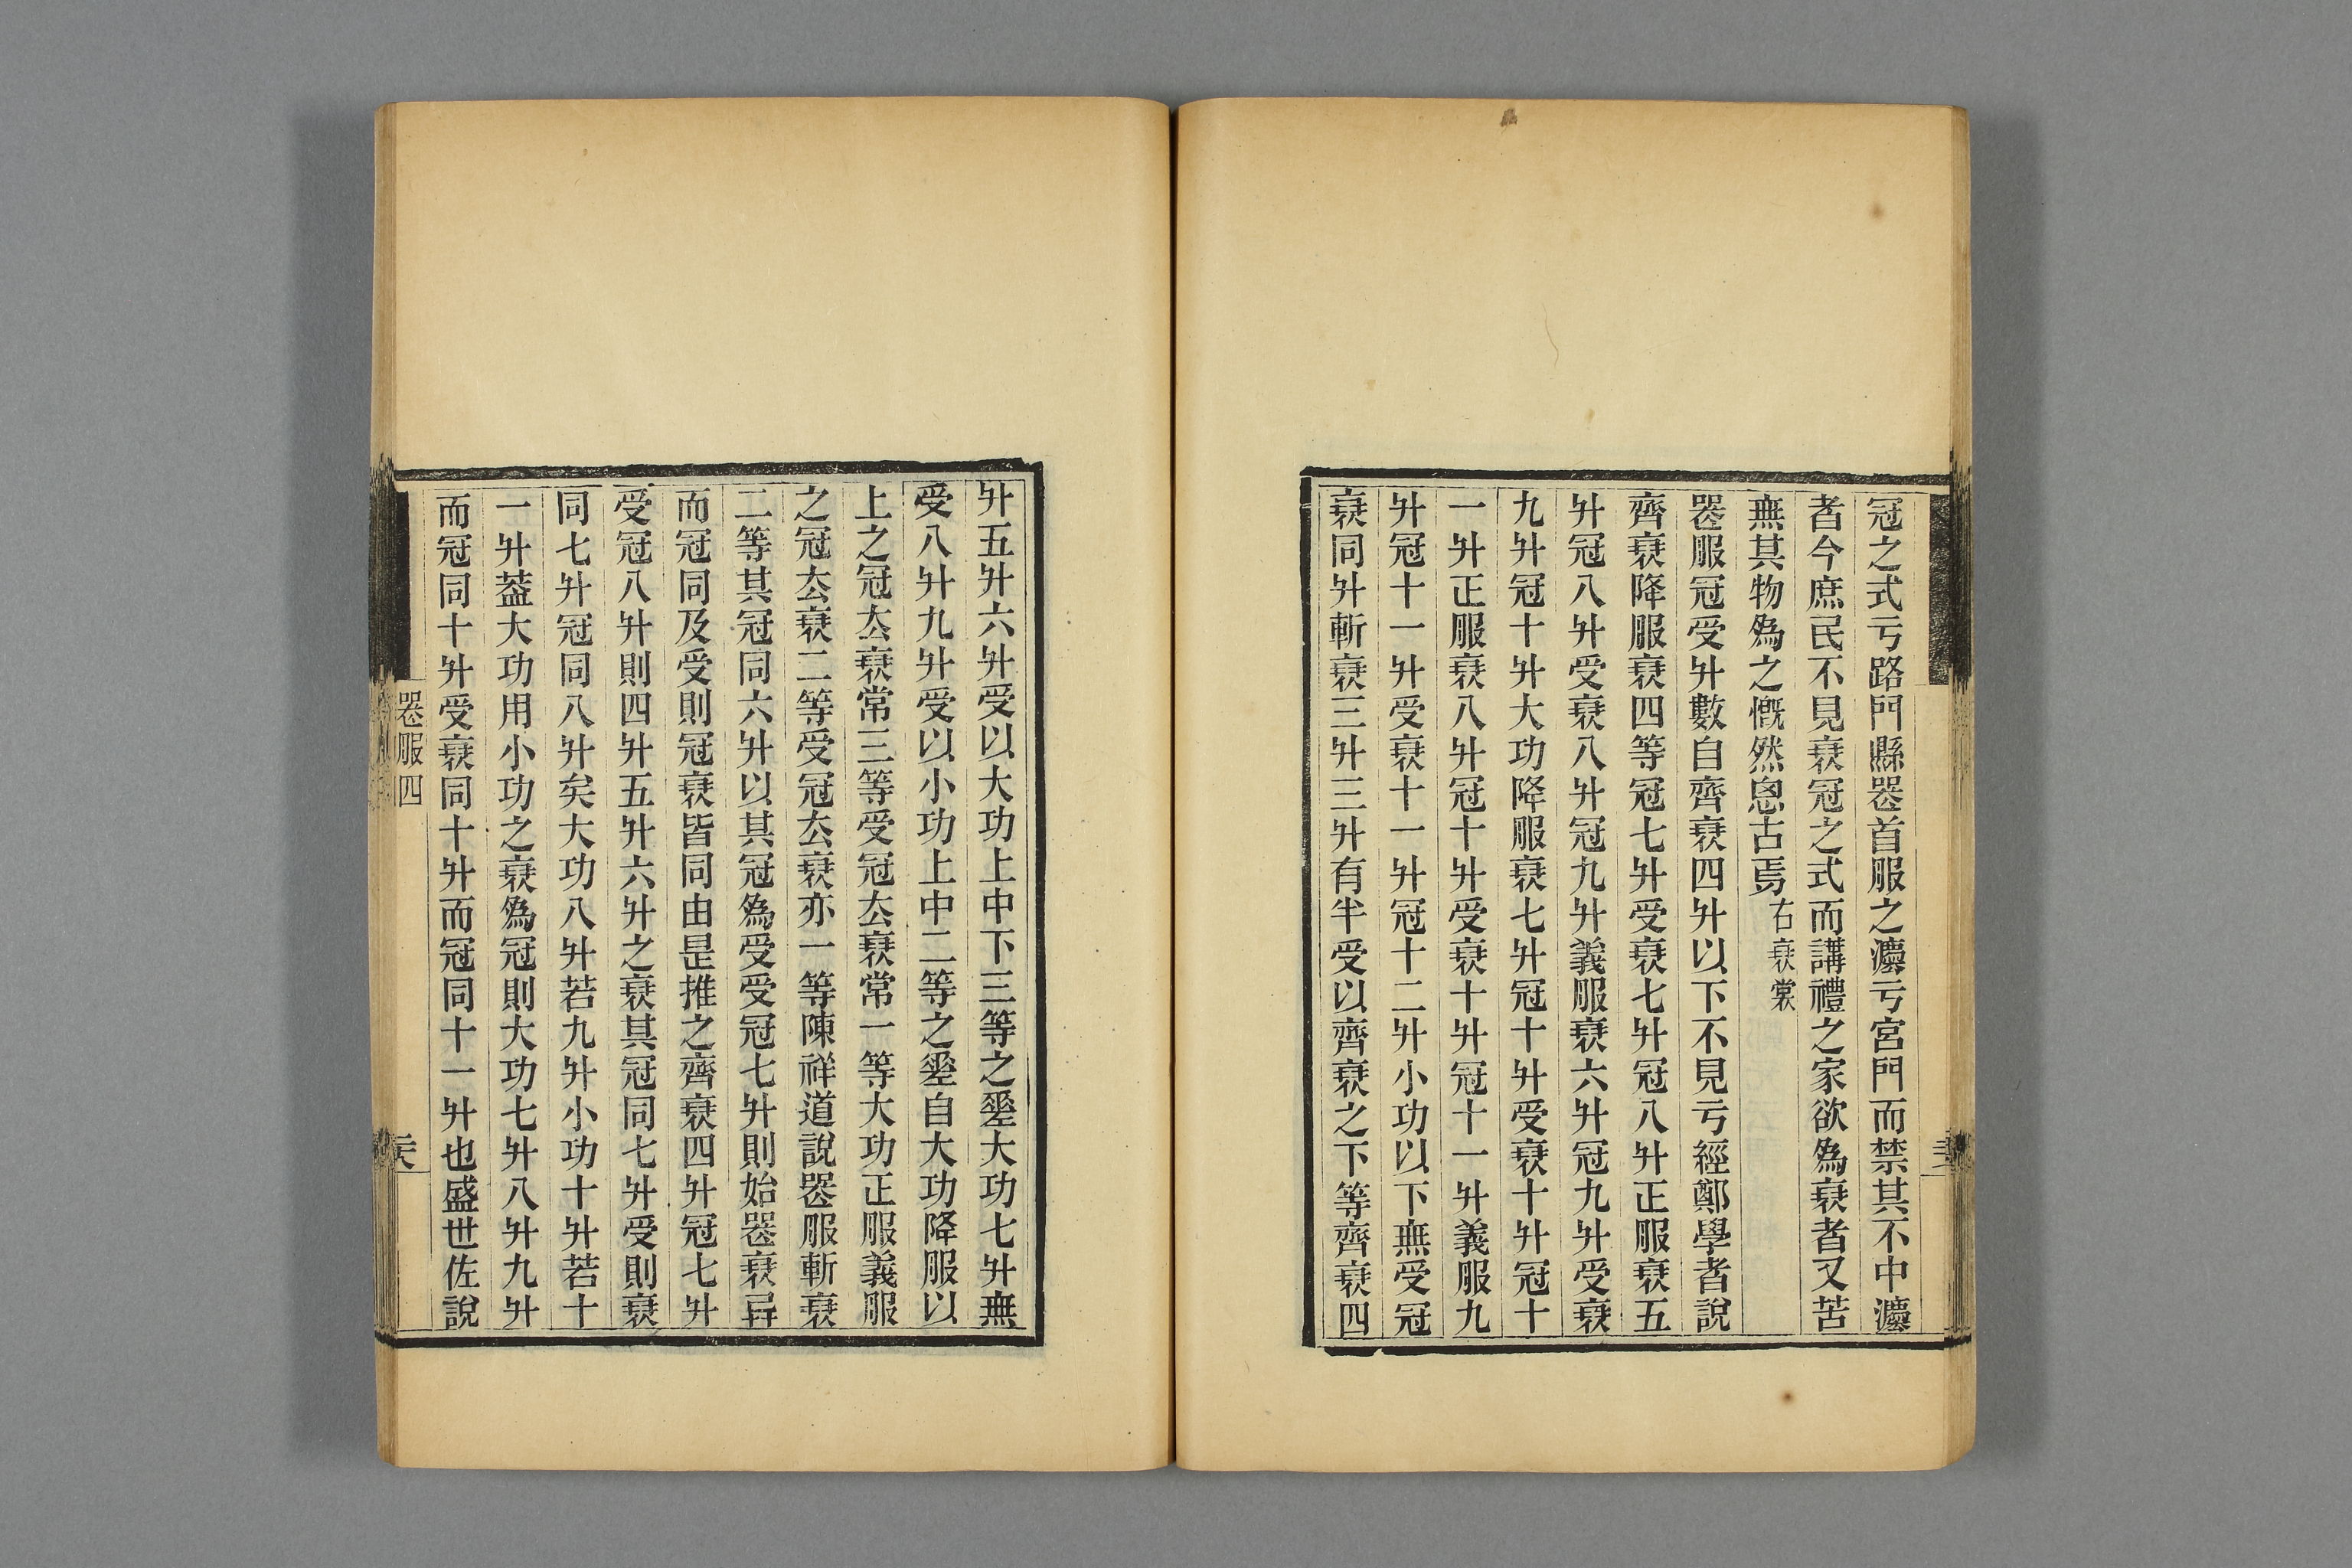 冠之式亏路門縣喪首服之灋亏宮門而禁其不中灋
者今庶民不見衰冠之式而講禮之家欲爲衰者又苦
無其物爲之慨然恖古焉右衰裳
喪服冠受升數自齊衰四升以下不見亏經鄭學者說
齊衰降服衰四等冠七升受衰七升冠八升正服衰五
升冠八升受衰八升冠九升義服衰六升冠九升受衰
九升冠十升大功降服衰七升冠十升受衰十升冠十
一升正服衰八升冠十升受衰十升冠十一升義服九
升冠十一升受衰十一升冠十二升小功以下無受冠
衰同升斬衰三升三升有半受以齊衰之下等齊衰四
升五升六升受以大功上中下三等之閒大功七升無
受八升九升受以小功上中二等之閒自大功降服以
上之冠厺衰常三等受冠厺衰常一等大功正服義服
之冠厺衰二等受冠厺衰亦一等陳祥道說喪服斬衰
二等其冠同六升以其冠爲受受冠七升則始喪衰異
而冠同及受則冠衰皆同由是推之齊衰四升冠七升
受冠八升則四升五升六升之衰其冠同七升受則衰
同七升冠同八升矣大功八升若九升小功十升若十
一升葢大功用小功之衰爲冠則大功七升八升九升
而冠同十升受衰同十升而冠同十一升也盛世佐說
喪服四